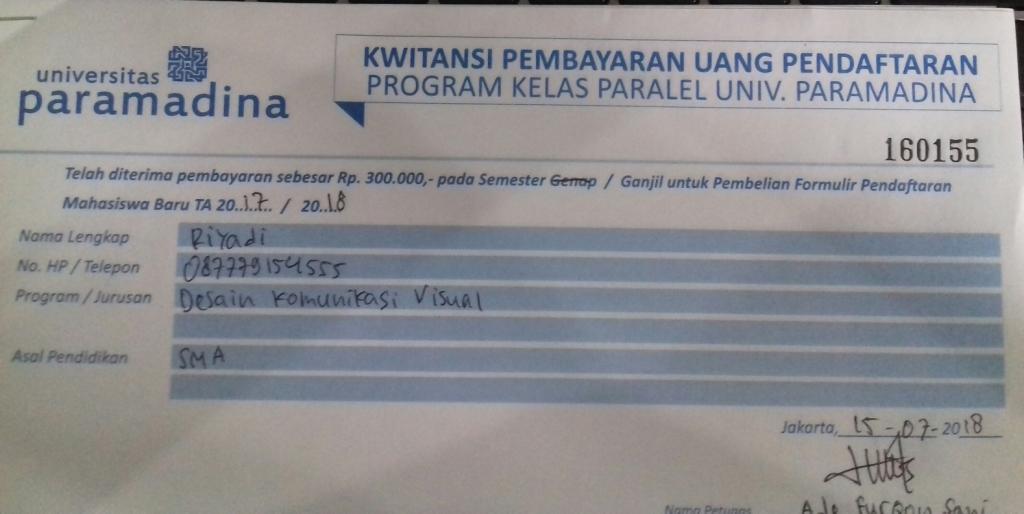 universitas
paramadina
KWITANSI PEMBAYARAN UANG PENDAFTARAN
PROGRAM KELAS PARALEL UNIV. PARAMADINA
160155
Telah diterima pembayaran sebesar Rp. 300.000,- pada Semester Genap / Ganjil untuk Pembelian Formulir Pendaftaran
Mahasiswa Baru TA 20..17.. / 20..18
Nama Lengkap Riyadi
No. HP / Telepon 087779154555
Program / Jurusan Desain Komunikasi Visual
Asal Pendidikan SMA
Jakarta, 15-07-2018
Nama Petugas Ade Furqon Sani